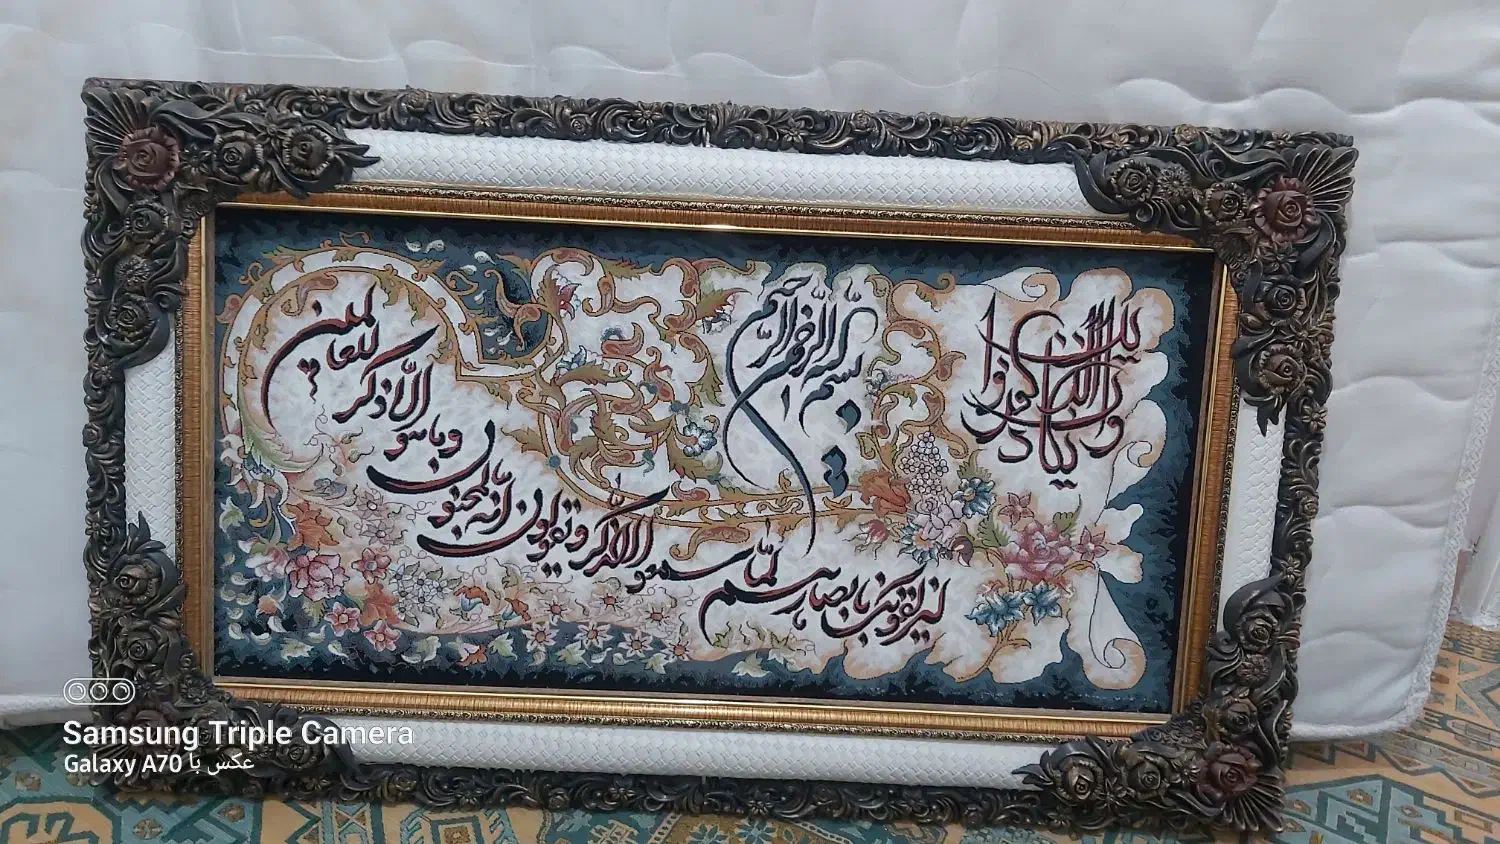 بسم الله الرحمن الرحیم
وان یکاد الذین کفروا
لیزلقونک بابصارهم لما سمعوا الذکر ویقولون انه لمجنون
وما هو الا ذکر للعالمین
Samsung Triple Camera
عکس با Galaxy A70